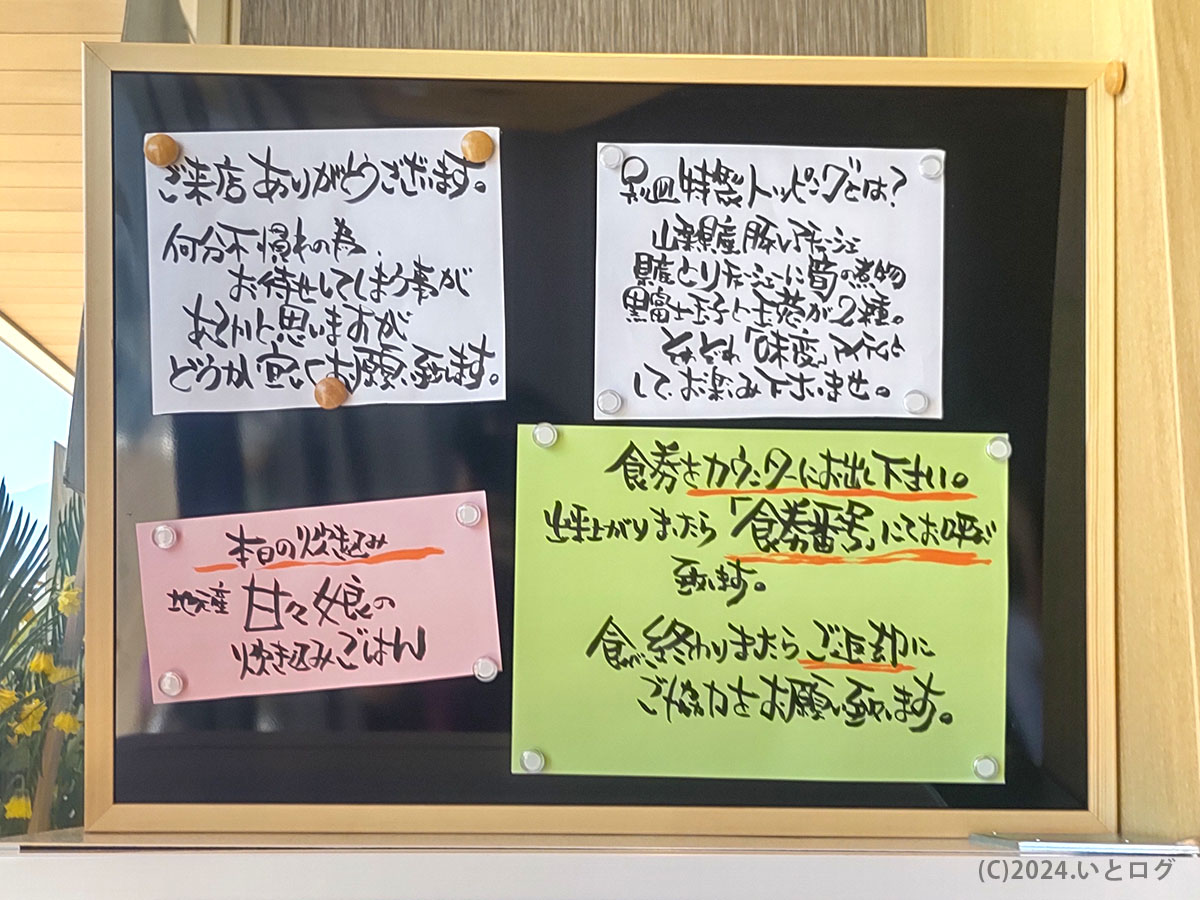 ご来店ありがとうございます。
何分不慣れの為
お待せしてしまう事が
あるかと思いますが
どうか宜しくお願い致します。
別皿特製トッピングとは?
山梨県産豚レアチャーシュー
県産とりチャーシューに筍の煮物
黒富士玉子と
が2種。
それぞれ「味変」
として、お楽み下さいませ。
本日の炊き込み
地元産 甘々娘の
炊き込みごはん
食券をカウンターにお出し下さい。
出来上がりましたら「食券番号」にてお呼び
致します。
食べ終わりましたらご返却に
ご協力をお願い致します。
(C)2024.いとログ